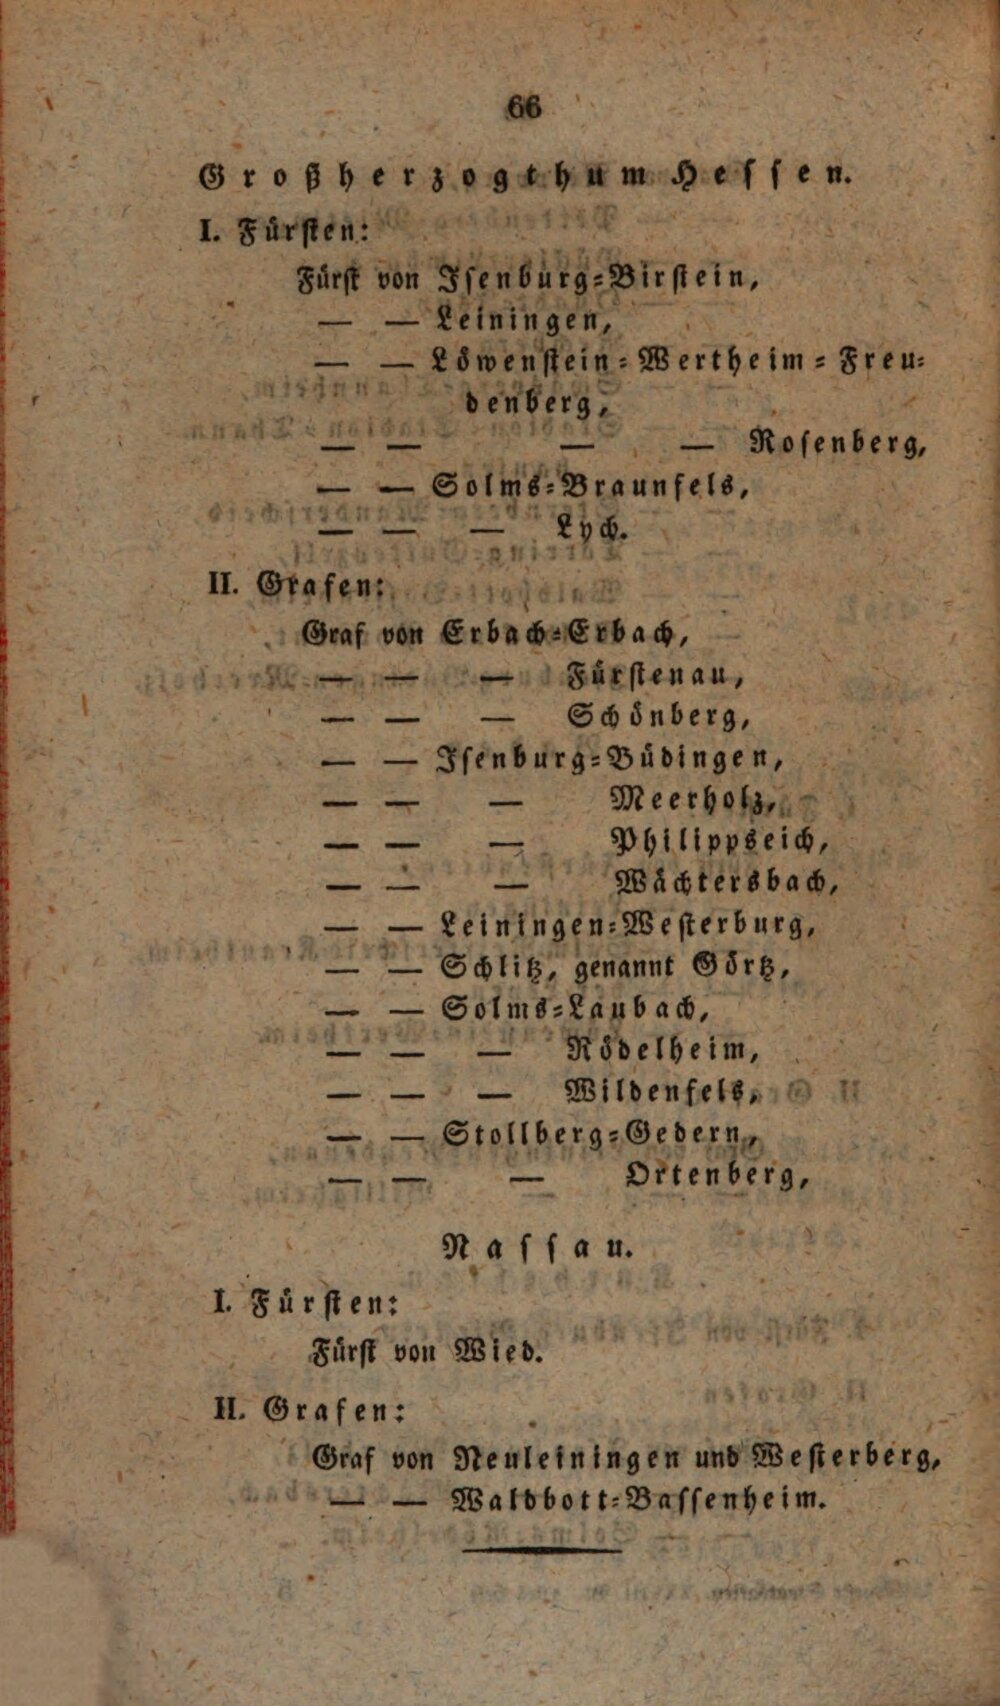 66
Großherzogthum Hessen.
I. Fürsten:
Fürst von Isenburg-Birstein,
— — Leiningen,
— — Löwenstein-Wertheim-Freu-
denberg,
— — — — Rosenberg,
— — Solms-Braunfels,
— — — Lych.
II. Grafen:
Graf von Erbach-Erbach,
— — — Fürstenau,
— — — Schönberg,
— — Isenburg-Büdingen,
— — — Meerholz,
— — — Philippseich,
— — — Wächtersbach,
— — Leiningen-Westerburg,
— — Schlitz, genannt Görtz,
— — Solms-Laubach,
— — — Rödelheim,
— — — Wildenfels,
— — Stollberg-Gedern,
— — — Ortenberg,
Nassau.
I. Fürsten:
Fürst von Wied.
II. Grafen:
Graf von Neuleiningen und Westerberg,
— — Waldbott-Bassenheim.